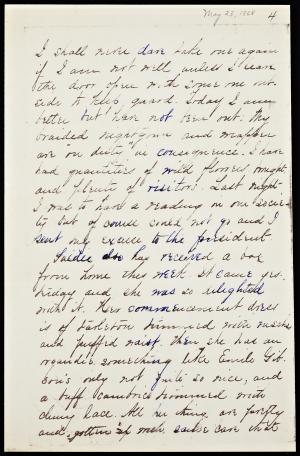 May 23, 1868
4
I shall never dare take one again
if I am not well, unless I leave
the door open with some one out-
side to keep guard. Today I am
better but have not been out. My
braided nightgown and wrapper
are "on duty" in consequence. I have
had quantities of wild flowers brought
and plenty of visitors. Last night
I was to have a reading in our socie-
ty but of course could not go and I
sent my excuse to the president.
Sallie has received a box
from home this week. It came yes-
terday and she was so delighted
with it. Her commencement dress
is of tarleton trimmed with ruche
and puffed waist, then she has an
organdie something like
only not quite so nice, and
a buff cambric trimmed with
cluny lace. All her things are pretty
and gotten up with care that